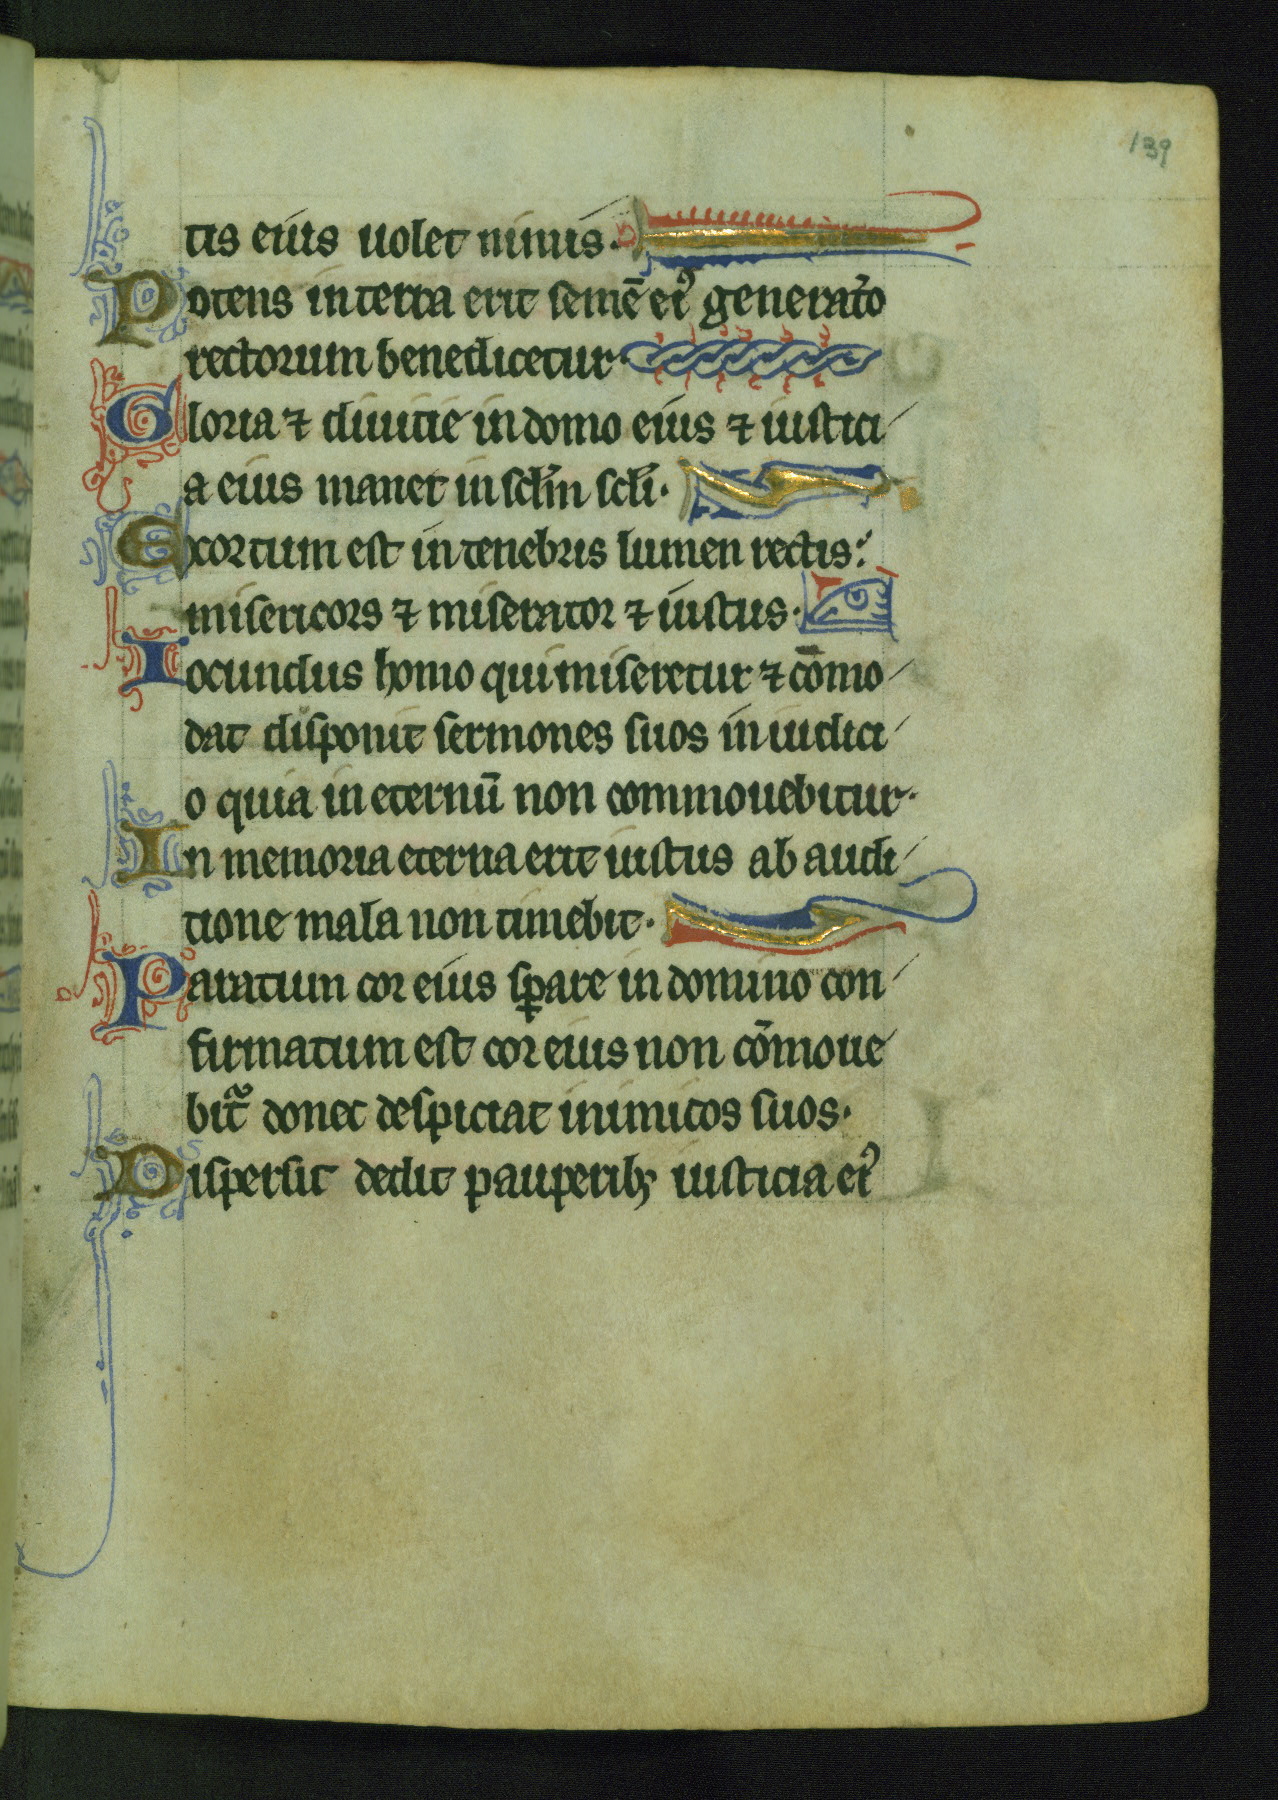 139
tis eius uolet nimis.
Potens in terra erit semē eiꝰ generatō
rectorum benedicetur.
Gloria ⁊ diuicie in domo eius ⁊ iustici
a eius manet in sclm̄ scli̅.
Exortum est in tenebris lumen rectis:
misericors ⁊ miserator ⁊ iustus.
Iocundus homo qui miseretur ⁊ cōmo
dat disponit sermones suos in iudici
o quia in eternū non commouebitur.
In memoria eterna erit iustus ab audi
tione mala non timebit.
Paratum cor eius sꝑare in domino con
firmatum est cor eius non cōmoue
bit᷑ donec despiciat inimicos suos.
Dispersit dedit pauperibꝫ iusticia eiꝰ